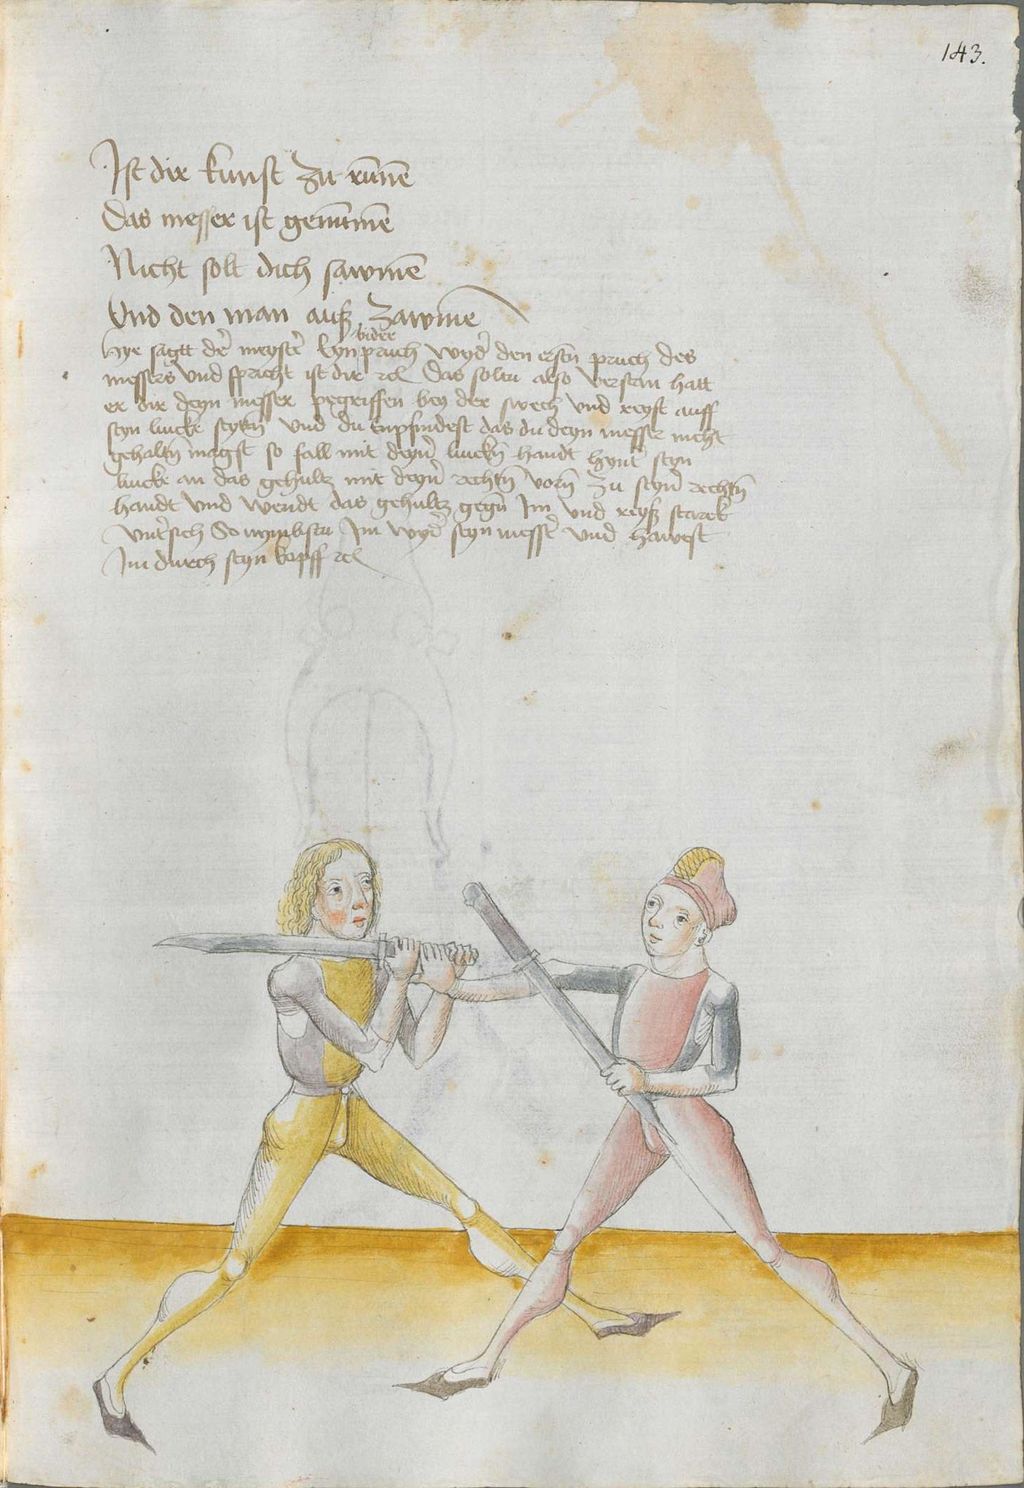 143.
Ist dir kunst zu rūnē
Das messer ist genūmē
Nicht solt dich sawmē
Vnd den man auß zawmē
widˀ
Hye sagtt dˀ meystˀ Eyn pruch wydˀ den erstn̄ pruch des
messers vnd spricht ist dir ꝛcͣ Das soltu also verstan hatt
er dir deyn messer pegriffen bey der swech vnd reyst auff
seyn lincke seytn̄ Vnd du Enpfindest das du deyn messer nicht
gehaltn̄ magst so fall mit deynˀ linckn̄ handt hyntˀ seyn
lincke an das gehultz mit deynˀ rechtn̄ vorn̄ zu seynˀ rechtn̄
handt vnd wendt das gehultz gegn̄ Im vnd reyß starck
vntˀsich So nymbstu Im wydˀ seyn messˀ vnd hawest
Im durch seyn kopff ꝛcͣ